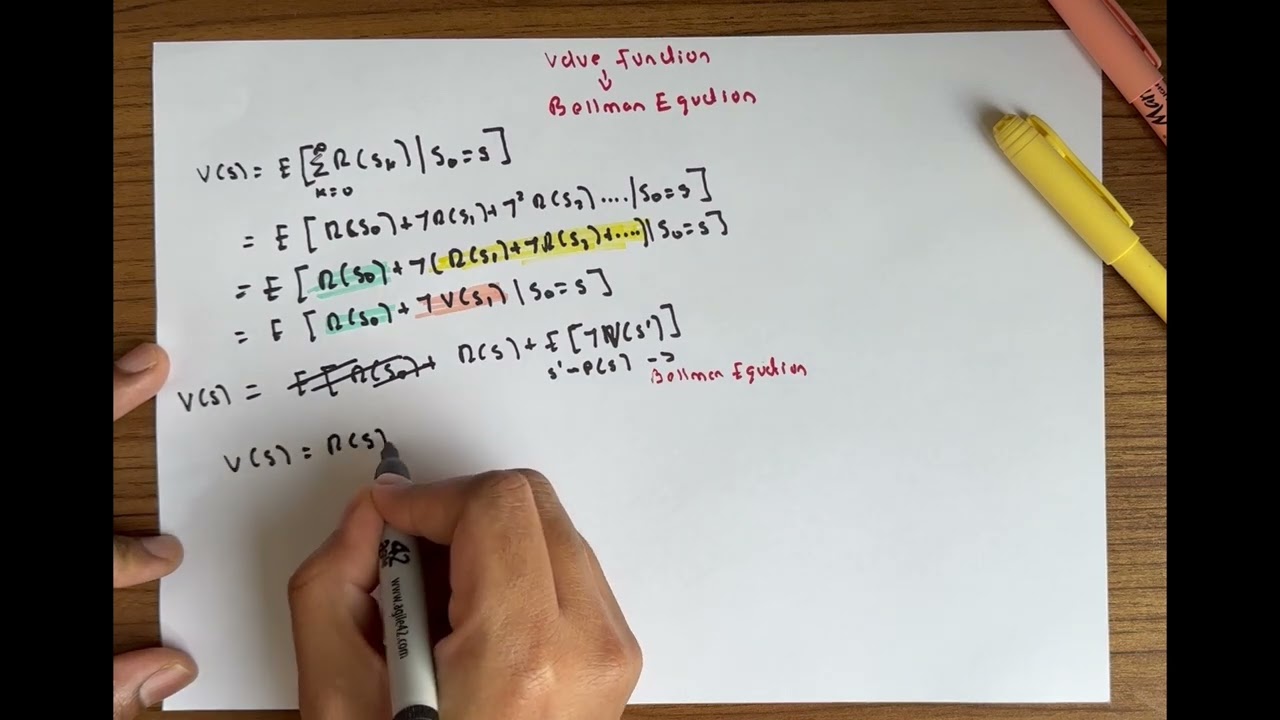 Value Function
↓
Bellman Equation
V(s) = E[∑_{k=0}^{∞} R(s_k) | S₀ = s]
= E[R(s₀) + γR(s₁) + γ² R(s₂) .... | S₀ = s]
= E[R(s₀) + γ(R(s₁) + γR(s₂) + ....) | S₀ = s]
= E[R(s₀) + γV(s₁) | S₀ = s]
V(s) = E[R(s₀) + R(s) + E[γV(s')]
s'~P(s) -> Bellman Equation
V(s) = R(s)
42
www.agile42.com
Mar